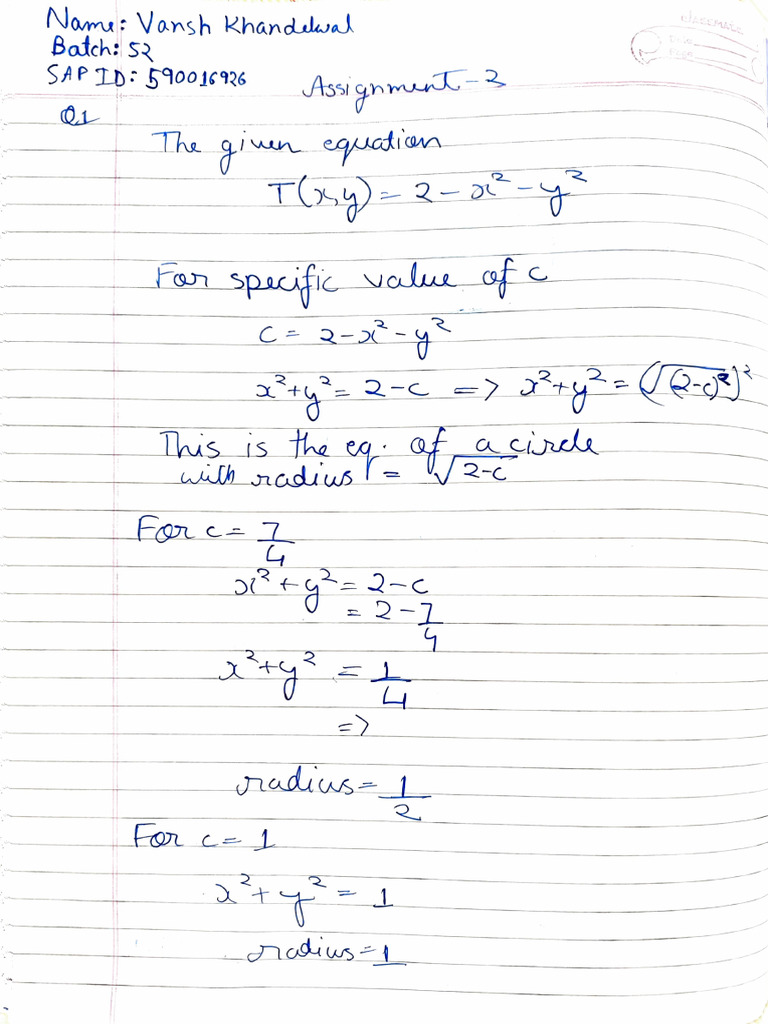 CLASSMATE
Date
Page
Name: Vansh Khandelwal
Batch: 52
SAP ID: 590016926
Assignment-3
Q1
The given equation
T(x,y) = 2 - x² - y²
For specific value of c
c = 2 - x² - y²
x² + y² = 2 - c => x² + y² = (√(2-c)²)²
This is the eq. of a circle
with radius r = √2-c
For c = 7/4
x² + y² = 2 - c
= 2 - 7/4
x² + y² = 1/4
=>
radius = 1/2
For c = 1
x² + y² = 1
radius = 1